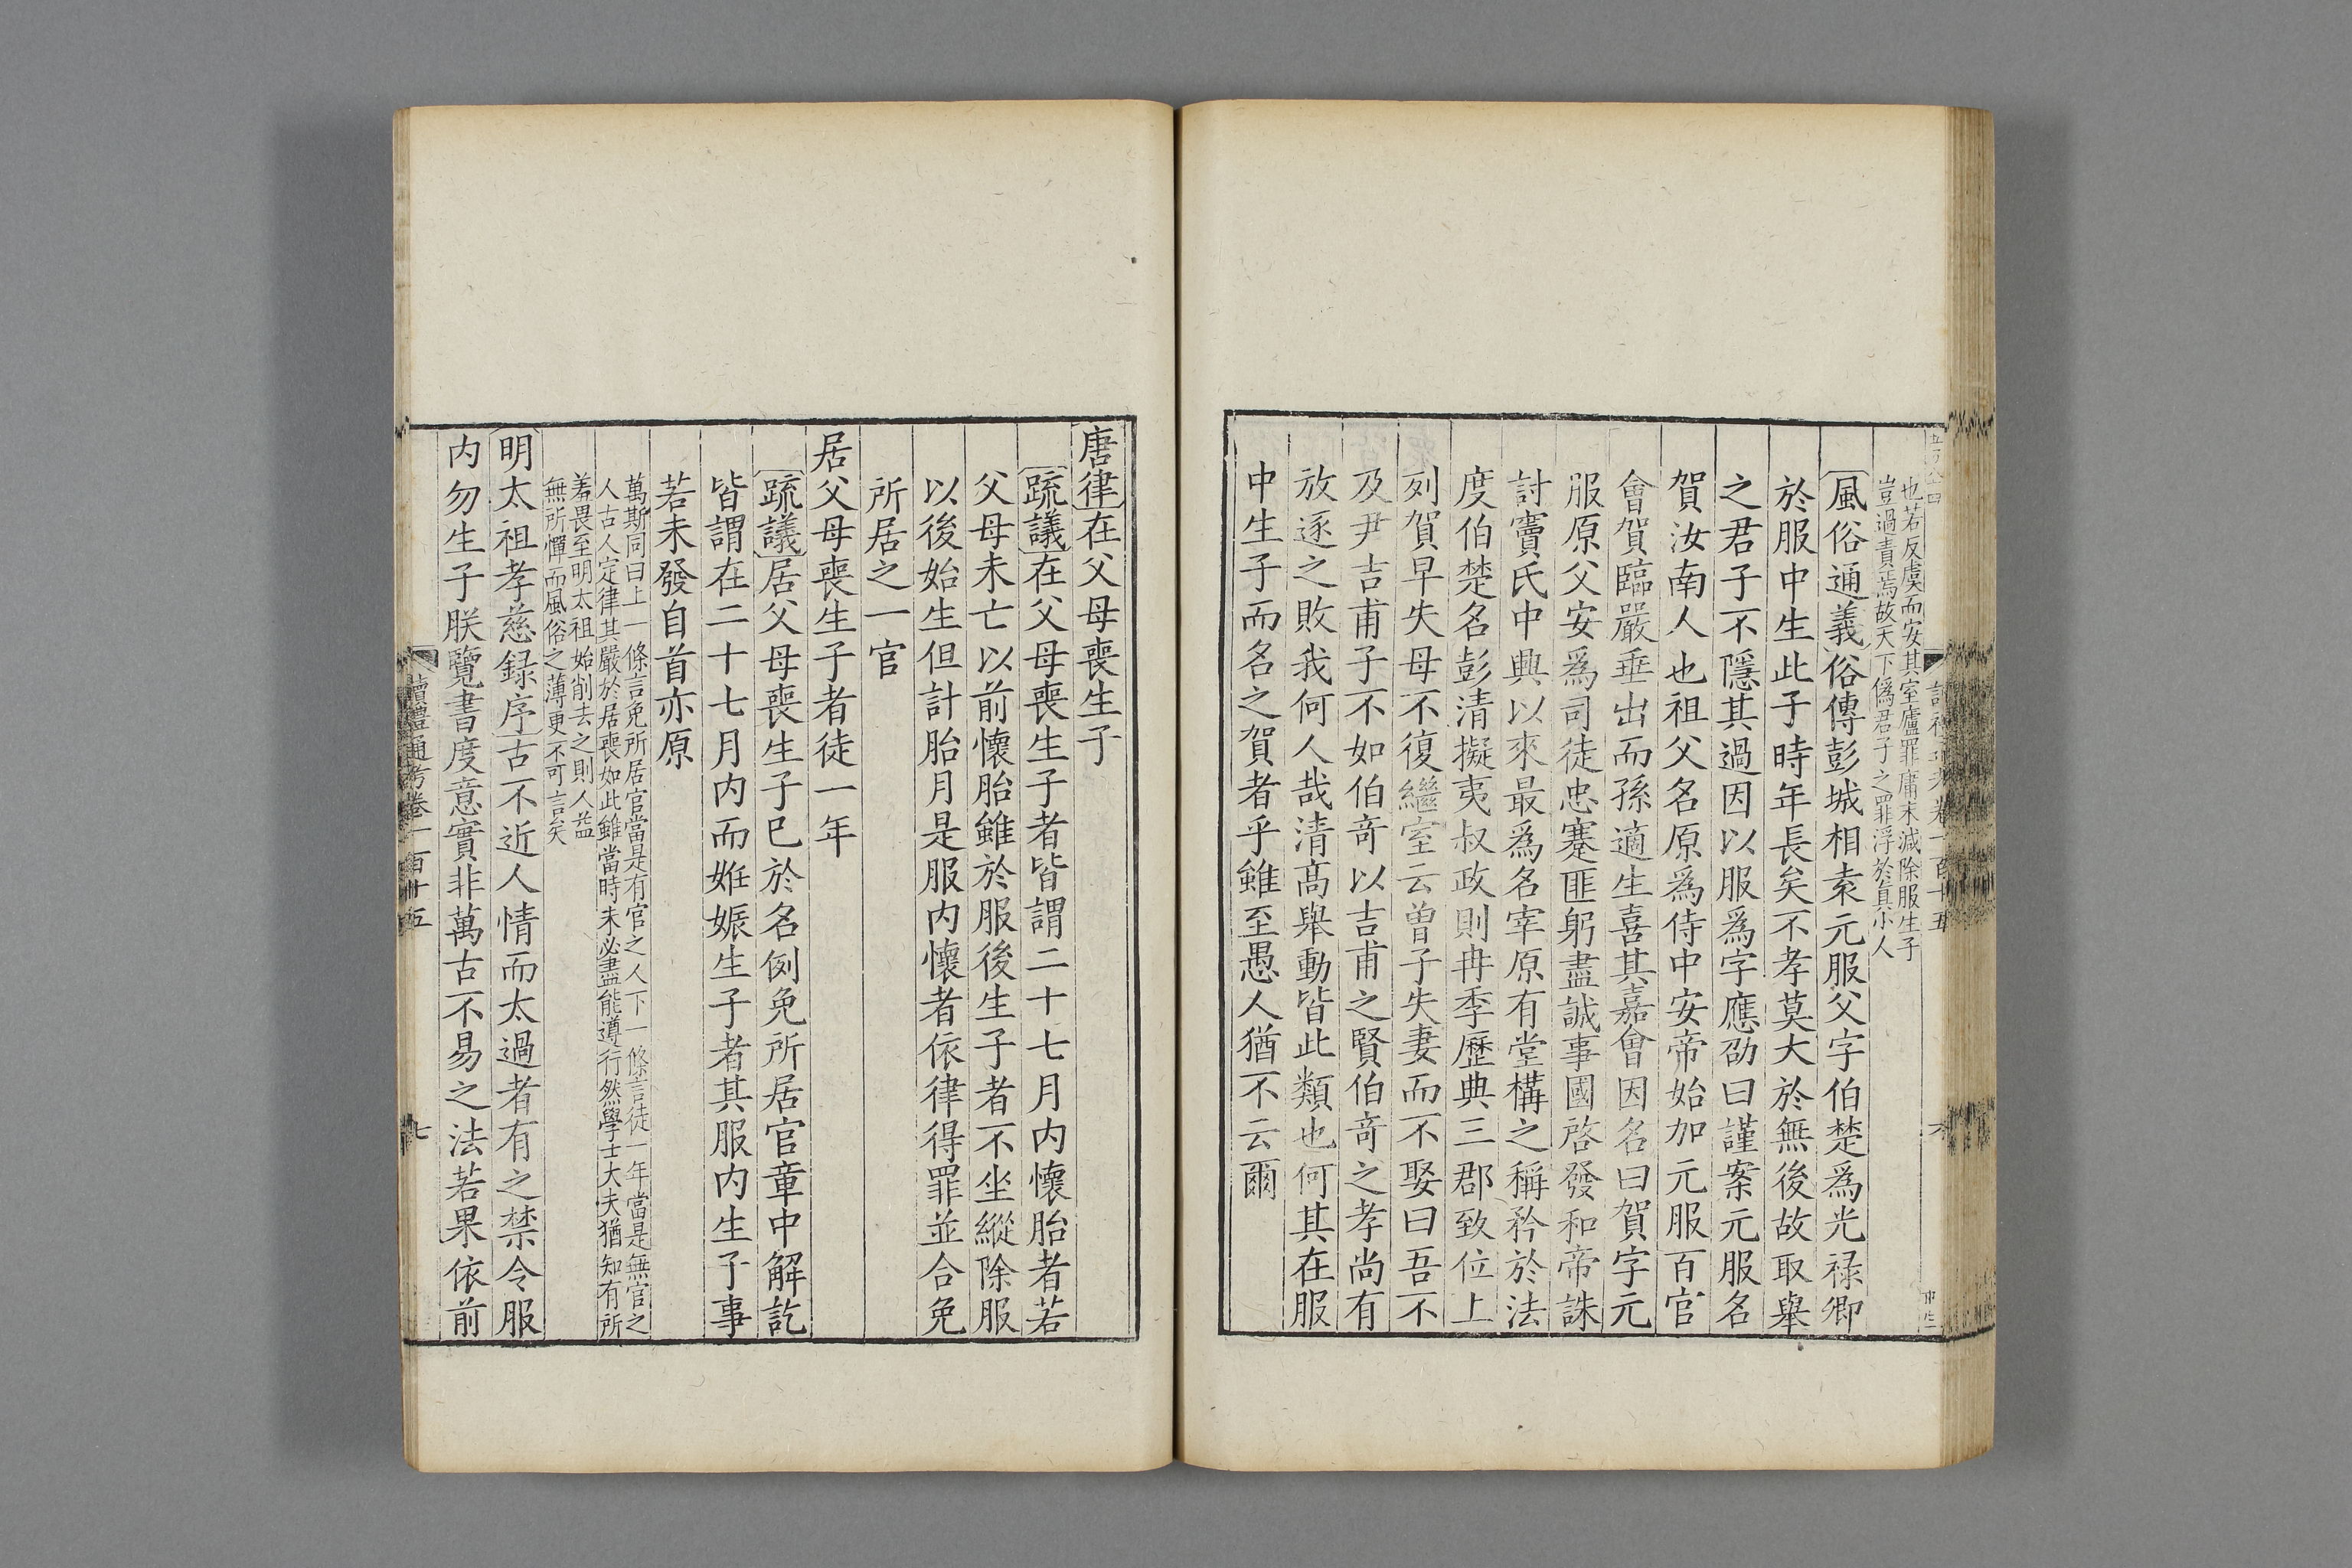 也若反虞而安其室廬罪庸末減除服生子
豈過責焉故天下僞君子之罪浮於真小人
風俗通義俗傳彭城相袁元服父字伯楚爲光祿卿
於服中生此子時年長矣不孝莫大於無後故取舉
之君子不隱其過因以服爲字應劭曰謹案元服名
賀汝南人也祖父名原爲侍中安帝始加元服百官
會賀臨嚴垂出而孫適生喜其嘉會因名曰賀字元
服原父安爲司徒忠蹇匪躬盡誠事國啓發和帝誅
討竇氏中興以來最爲名宰原有堂構之稱矜於法
度伯楚名彭清擬夷叔政則冉季歷典三郡致位上
列賀早失母不復繼室云曾子失妻而不娶曰吾不
及尹吉甫子不如伯奇以吉甫之賢伯奇之孝尚有
放逐之敗我何人哉清高舉動皆此類也何其在服
中生子而名之賀者乎雖至愚人猶不云爾
唐律在父母喪生子
疏議在父母喪生子者皆謂二十七月內懷胎者若
父母未亡以前懷胎雖於服後生子者不坐縱除服
以後始生但計胎月是服內懷者依律得罪並合免
所居之一官
居父母喪生子者徒一年
疏議居父母喪生子已於名例免所居官章中解訖
皆謂在二十七月內而姙娠生子者其服內生子事
若未發自首亦原
萬斯同曰上一條言免所居官當是有官之人下一條言徒一年當是無官之
人古人定律其嚴於居喪如此雖當時未必盡能遵行然學士大夫猶知有所
羞畏至明太祖始削去之則人益
無所憚而風俗之薄更不可言矣
明太祖孝慈録序古不近人情而太過者有之禁令服
內勿生子朕覽書度意實非萬古不易之法若果依前
讀禮通考卷一百十五
七